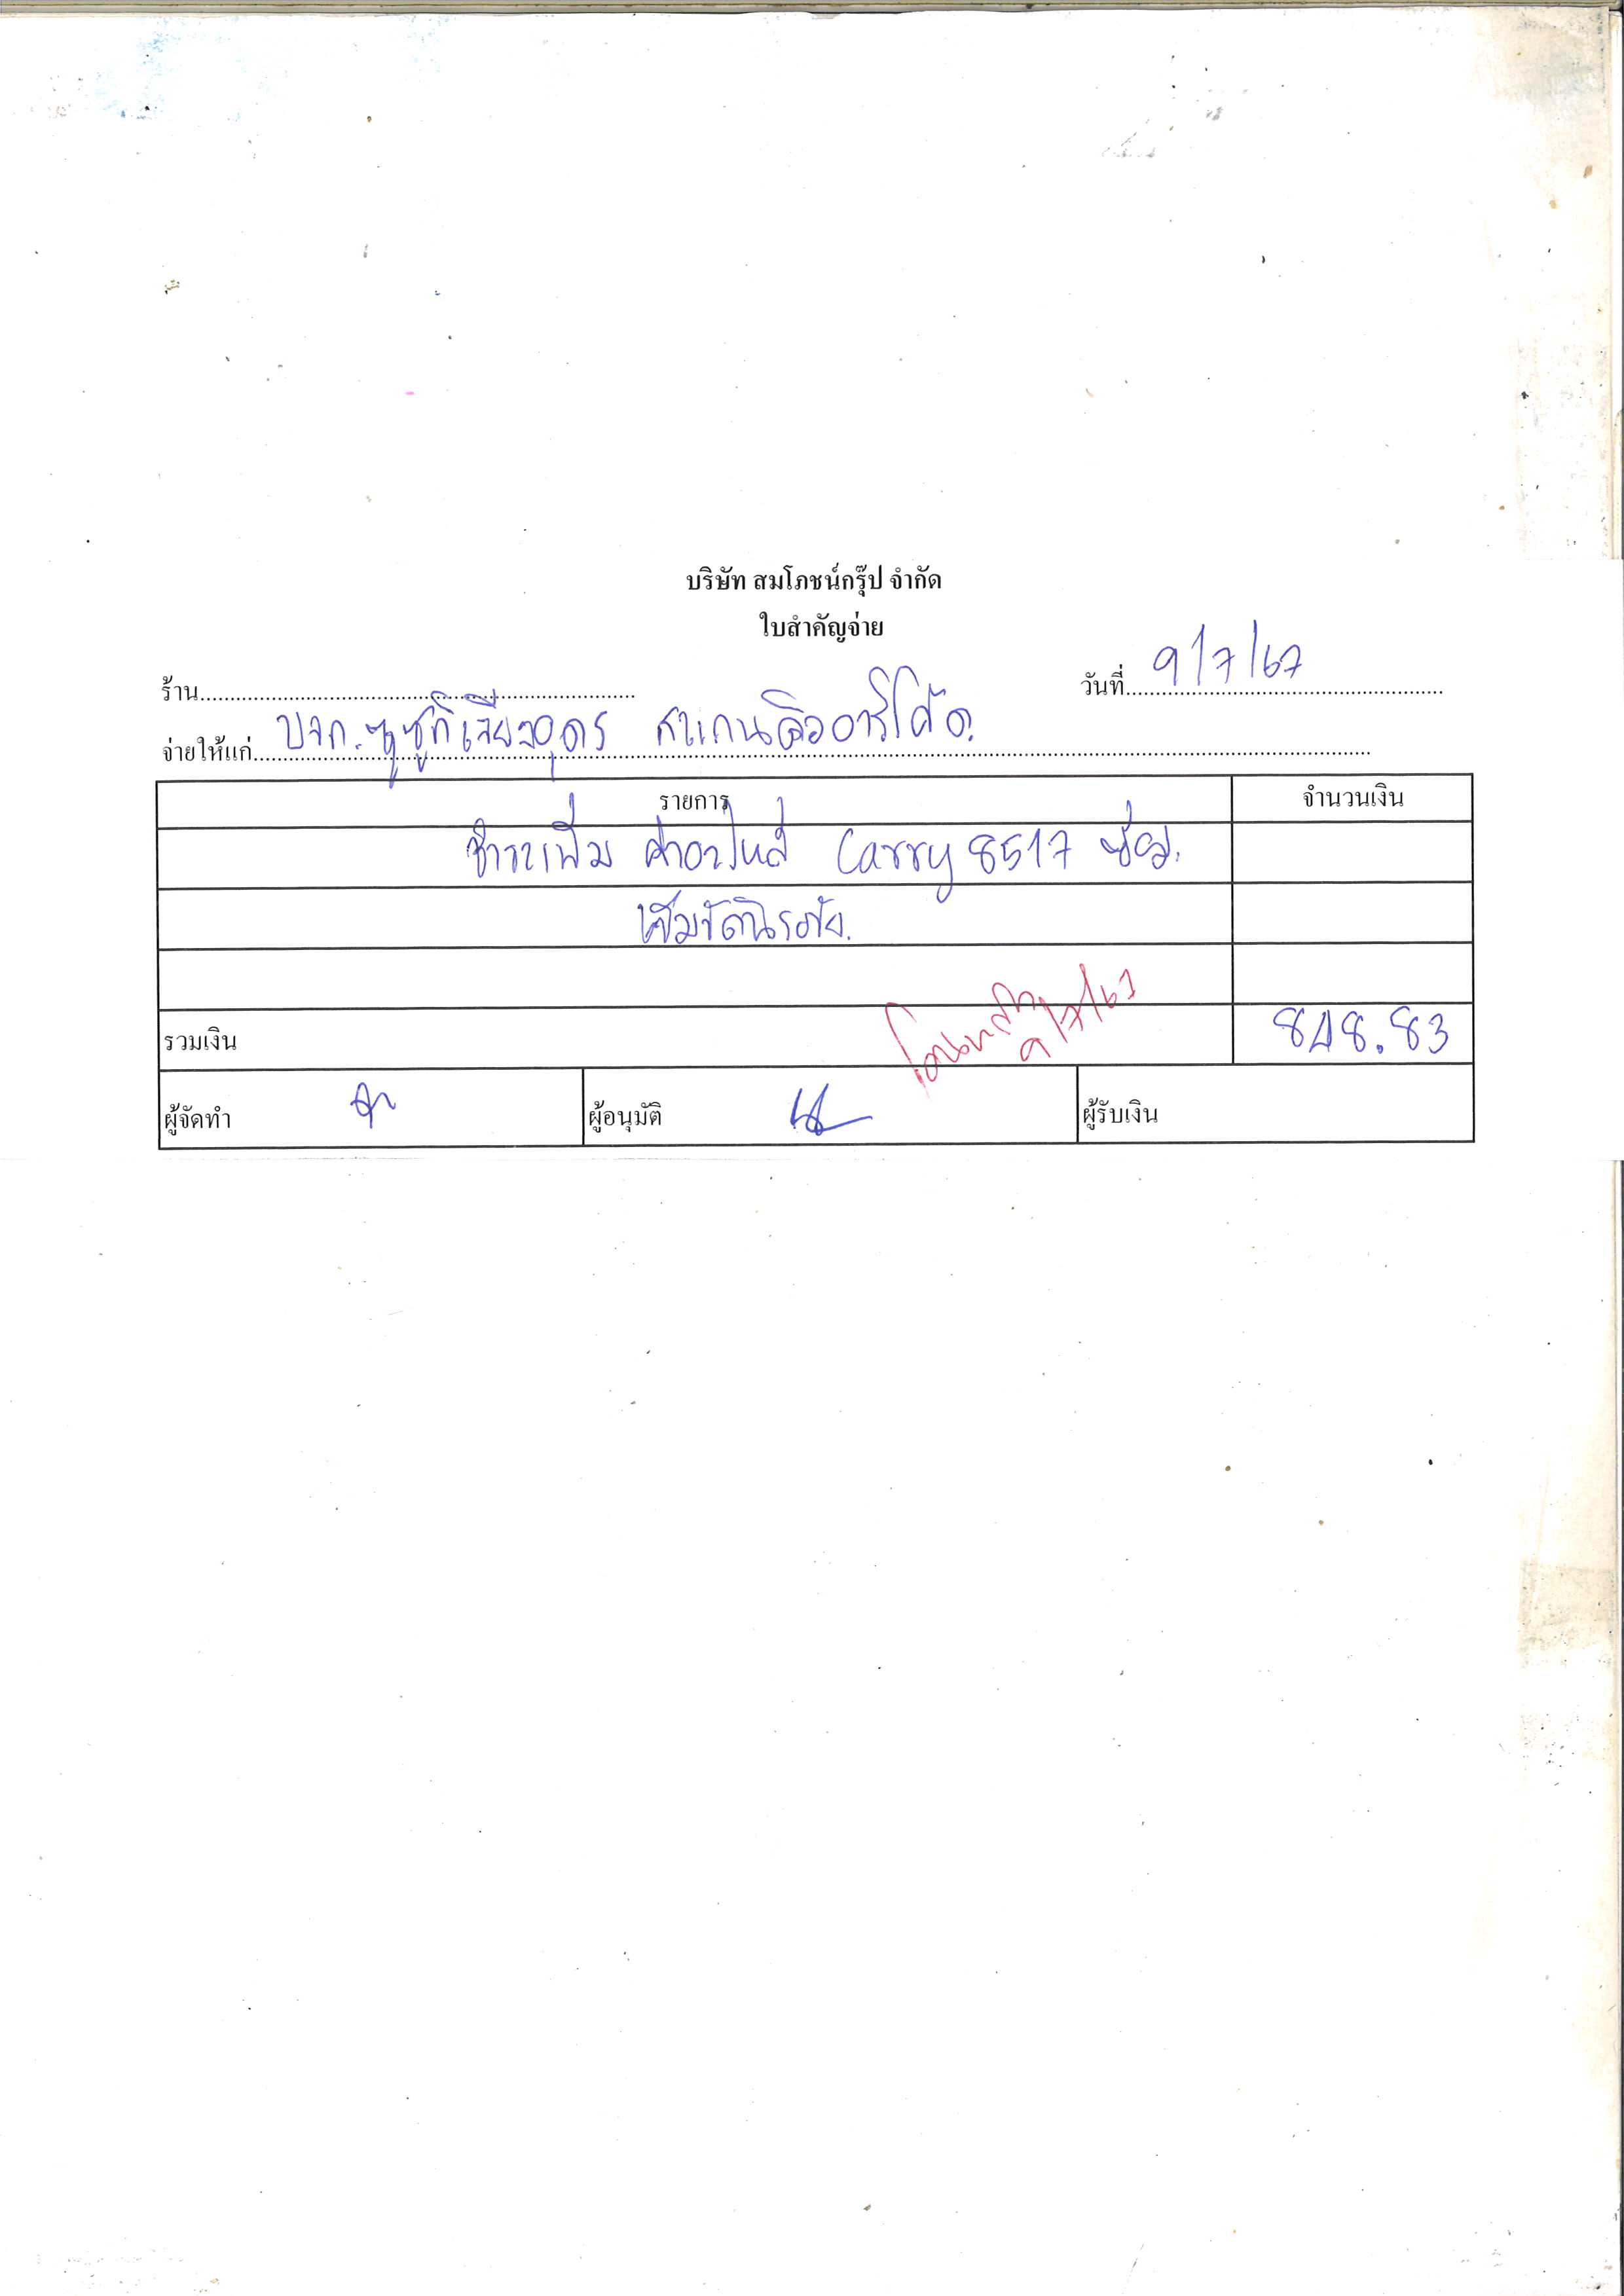 บริษัท สมโภชน์กรุ๊ป จำกัด
ใบสำคัญจ่าย
ร้าน
วันที่ 9/7/67
จ่ายให้แก่ บจก.ซูซูกิเจียงอุดร สแกนคิวอาร์โค้ด.
รายการ
จำนวนเงิน
ชำระเพิ่ม ค่าอะไหล่ Carry 8517 ซ่อม.
เข็มขัดนิรภัย.
รวมเงิน
848.83
9/7/67
ผู้จัดทำ
ผู้อนุมัติ
ผู้รับเงิน